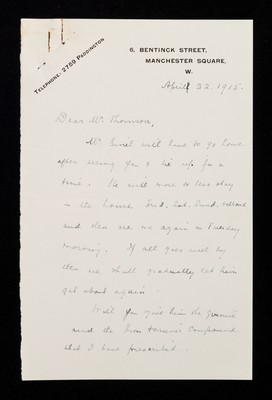 TELEPHONE: 2759 PADDINGTON
6, BENTINCK STREET,
MANCHESTER SQUARE,
W.
April 22. 1915.
Dear Mr Thomson,
Mr will have to go home
after seeing you & lie up for a
time. He will more or less stay
in the house Frid. Sat. Sund.
and then see me again on Tuesday
morning. If all goes well by
then we shall gradually let him
get about again.
Will you give him the
and the Iron Compound
that I have prescribed.